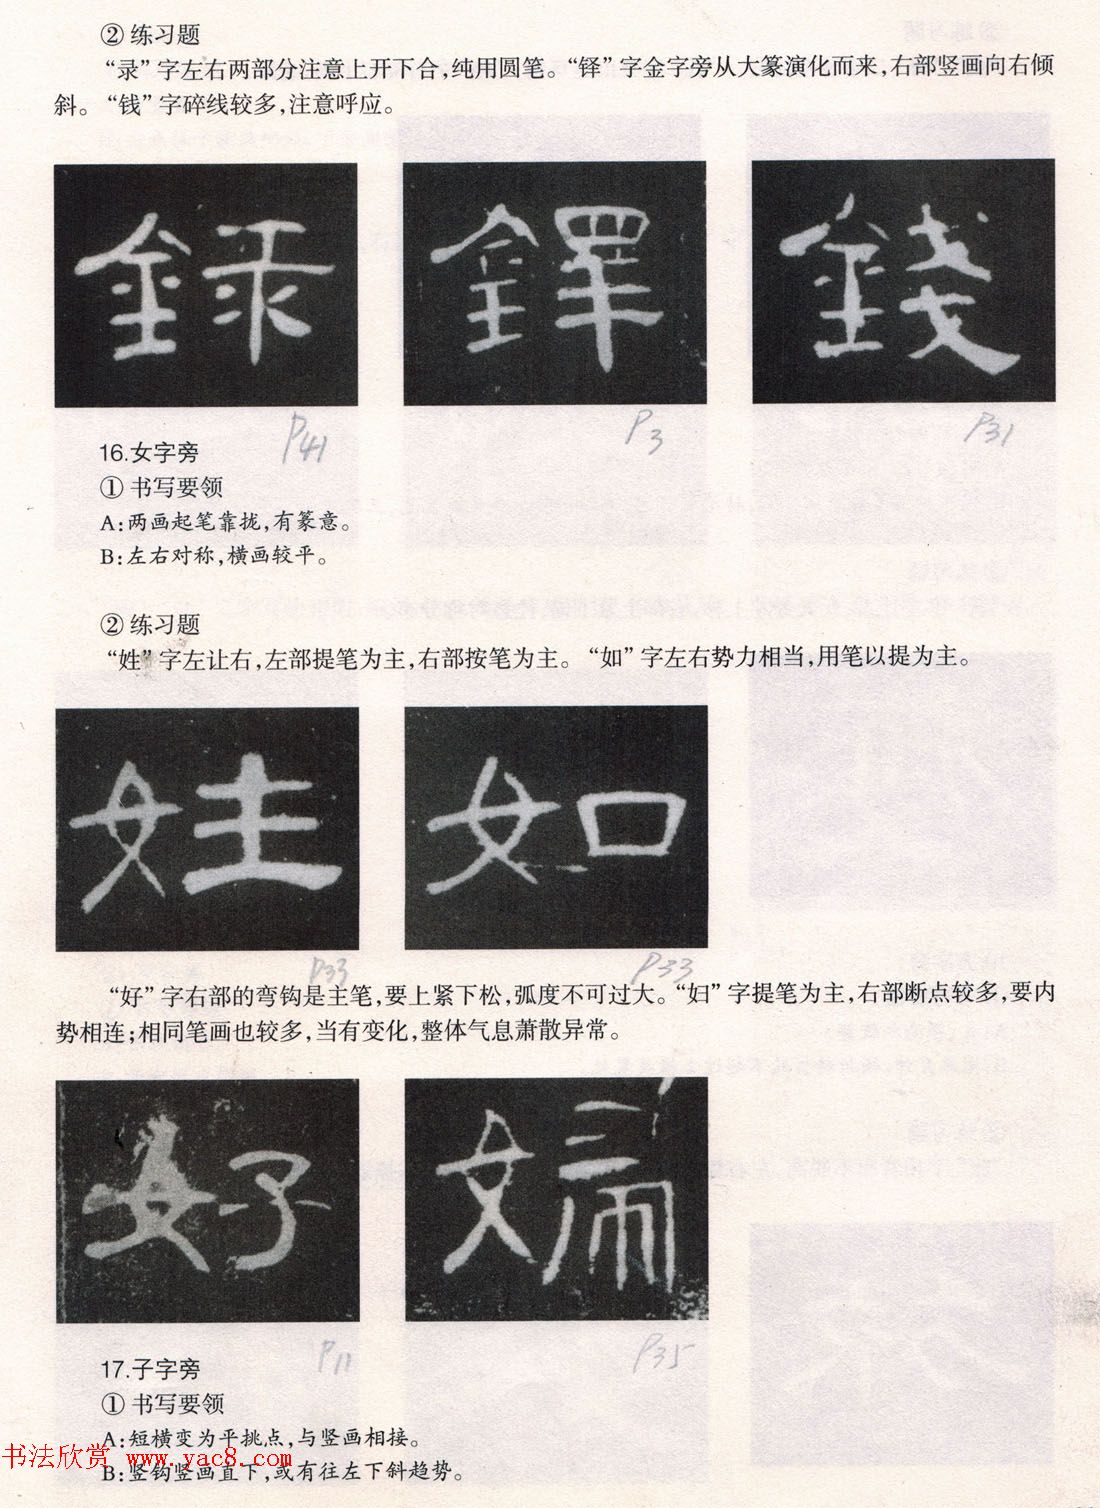 ② 练习题
“录”字左右两部分注意上开下合,纯用圆笔。“铎”字金字旁从大篆演化而来,右部竖画向右倾
斜。“钱”字碎线较多,注意呼应。
録 鐸 錢
P41 P3 P31
16.女字旁
① 书写要领
A:两画起笔靠拢,有篆意。
B:左右对称,横画较平。
② 练习题
“姓”字左让右,左部提笔为主,右部按笔为主。“如”字左右势力相当,用笔以提为主。
姓 如
P33 P33
“好”字右部的弯钩是主笔,要上紧下松,弧度不可过大。“妇”字提笔为主,右部断点较多,要内
势相连;相同笔画也较多,当有变化,整体气息萧散异常。
好 婦
P11 P35
17.子字旁
① 书写要领
A:短横变为平挑点,与竖画相接。
书法欣赏 www.yac8.com
B:竖钩竖画直下,或有往左下斜趋势。